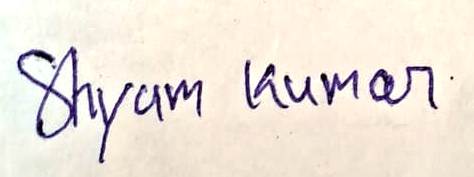 Shyam Kumar